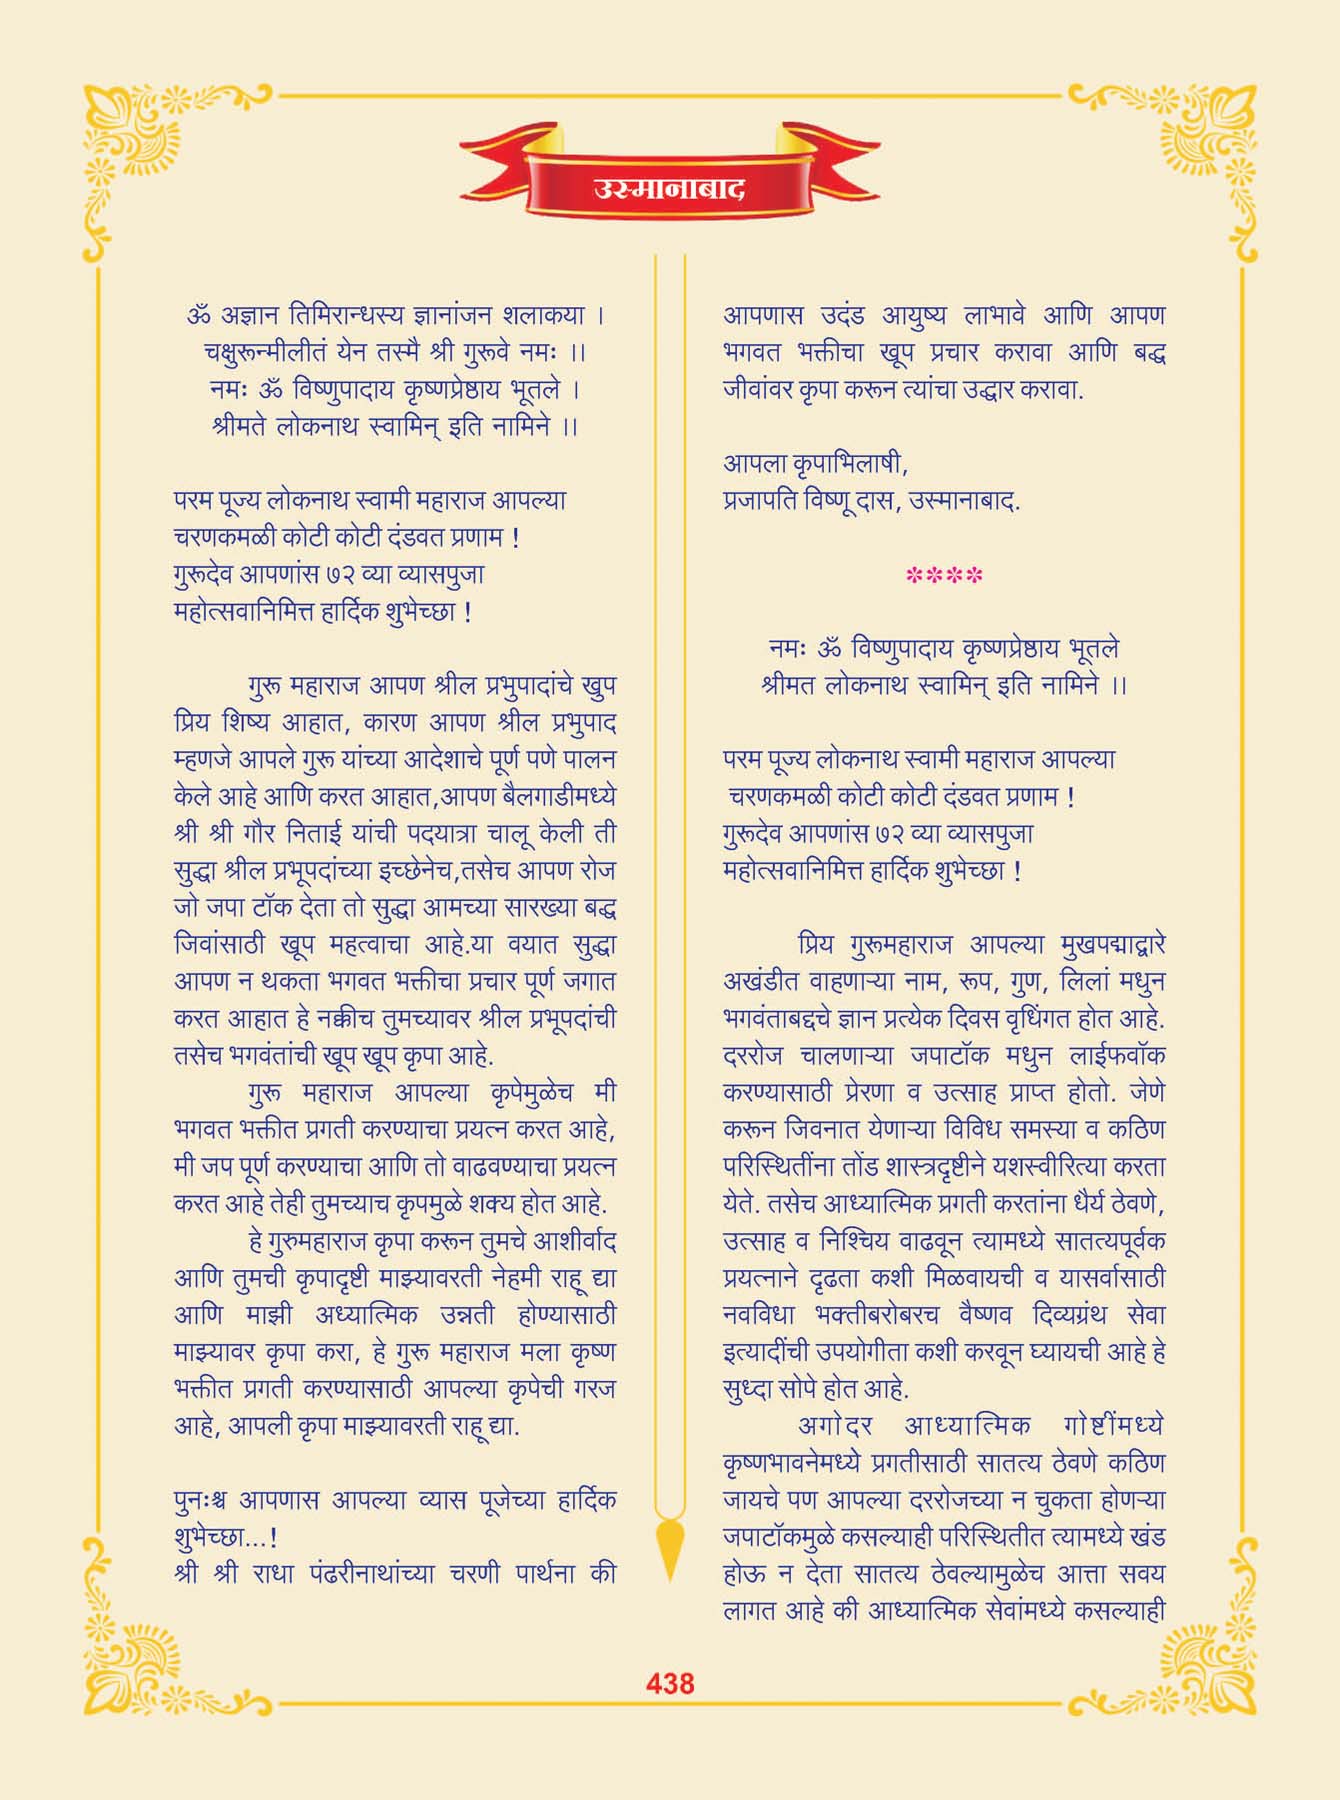 उस्मानाबाद
ॐ अज्ञान तिमिरान्धस्य ज्ञानांजन शलाकया ।
चक्षुरून्मीलीतं येन तस्मै श्री गुरूवे नमः ।।
नमः ॐ विष्णुपादाय कृष्णप्रेष्ठाय भूतले ।
श्रीमते लोकनाथ स्वामिन् इति नामिने ।।
परम पूज्य लोकनाथ स्वामी महाराज आपल्या
चरणकमळी कोटी कोटी दंडवत प्रणाम !
गुरूदेव आपणांस ७२ व्या व्यासपुजा
महोत्सवानिमित्त हार्दिक शुभेच्छा !
गुरू महाराज आपण श्रील प्रभुपादांचे खुप
प्रिय शिष्य आहात, कारण आपण श्रील प्रभुपाद
म्हणजे आपले गुरू यांच्या आदेशाचे पूर्ण पणे पालन
केले आहे आणि करत आहात,आपण बैलगाडीमध्ये
श्री श्री गौर निताई यांची पदयात्रा चालू केली ती
सुद्धा श्रील प्रभूपदांच्या इच्छेनेच,तसेच आपण रोज
जो जपा टॉक देता तो सुद्धा आमच्या सारख्या बद्ध
जिवांसाठी खूप महत्वाचा आहे.या वयात सुद्धा
आपण न थकता भगवत भक्तीचा प्रचार पूर्ण जगात
करत आहात हे नक्कीच तुमच्यावर श्रील प्रभूपदांची
तसेच भगवंतांची खूप खूप कृपा आहे.
गुरू महाराज आपल्या कृपेमुळेच मी
भगवत भक्तीत प्रगती करण्याचा प्रयत्न करत आहे,
मी जप पूर्ण करण्याचा आणि तो वाढवण्याचा प्रयत्न
करत आहे तेही तुमच्याच कृपमुळे शक्य होत आहे.
हे गुरुमहाराज कृपा करून तुमचे आशीर्वाद
आणि तुमची कृपादृष्टी माझ्यावरती नेहमी राहू द्या
आणि माझी अध्यात्मिक उन्नती होण्यासाठी
माझ्यावर कृपा करा, हे गुरू महाराज मला कृष्ण
भक्तीत प्रगती करण्यासाठी आपल्या कृपेची गरज
आहे, आपली कृपा माझ्यावरती राहू द्या.
पुनःश्च आपणास आपल्या व्यास पूजेच्या हार्दिक
शुभेच्छा...!
श्री श्री राधा पंढरीनाथांच्या चरणी पार्थना की
आपणास उदंड आयुष्य लाभावे आणि आपण
भगवत भक्तीचा खूप प्रचार करावा आणि बद्ध
जीवांवर कृपा करून त्यांचा उद्धार करावा.
आपला कृपाभिलाषी,
प्रजापति विष्णू दास, उस्मानाबाद.
****
नमः ॐ विष्णुपादाय कृष्णप्रेष्ठाय भूतले
श्रीमत लोकनाथ स्वामिन् इति नामिने ।।
परम पूज्य लोकनाथ स्वामी महाराज आपल्या
चरणकमळी कोटी कोटी दंडवत प्रणाम !
गुरूदेव आपणांस ७२ व्या व्यासपुजा
महोत्सवानिमित्त हार्दिक शुभेच्छा !
प्रिय गुरूमहाराज आपल्या मुखपद्माद्वारे
अखंडीत वाहणाऱ्या नाम, रूप, गुण, लिलां मधुन
भगवंताबद्दचे ज्ञान प्रत्येक दिवस वृधिंगत होत आहे.
दररोज चालणाऱ्या जपाटॉक मधुन लाईफवॉक
करण्यासाठी प्रेरणा व उत्साह प्राप्त होतो. जेणे
करून जिवनात येणाऱ्या विविध समस्या व कठिण
परिस्थितींना तोंड शास्त्रदृष्टीने यशस्वीरित्या करता
येते. तसेच आध्यात्मिक प्रगती करतांना धैर्य ठेवणे,
उत्साह व निश्चिय वाढवून त्यामध्ये सातत्यपूर्वक
प्रयत्नाने दृढता कशी मिळवायची व यासर्वासाठी
नवविधा भक्तीबरोबरच वैष्णव दिव्यग्रंथ सेवा
इत्यादींची उपयोगीता कशी करवून घ्यायची आहे हे
सुध्दा सोपे होत आहे.
अगोदर आध्यात्मिक गोष्टींमध्ये
कृष्णभावनेमध्ये प्रगतीसाठी सातत्य ठेवणे कठिण
जायचे पण आपल्या दररोजच्या न चुकता होणऱ्या
जपाटॉकमुळे कसल्याही परिस्थितीत त्यामध्ये खंड
होऊ न देता सातत्य ठेवल्यामुळेच आत्ता सवय
लागत आहे की आध्यात्मिक सेवांमध्ये कसल्याही
438